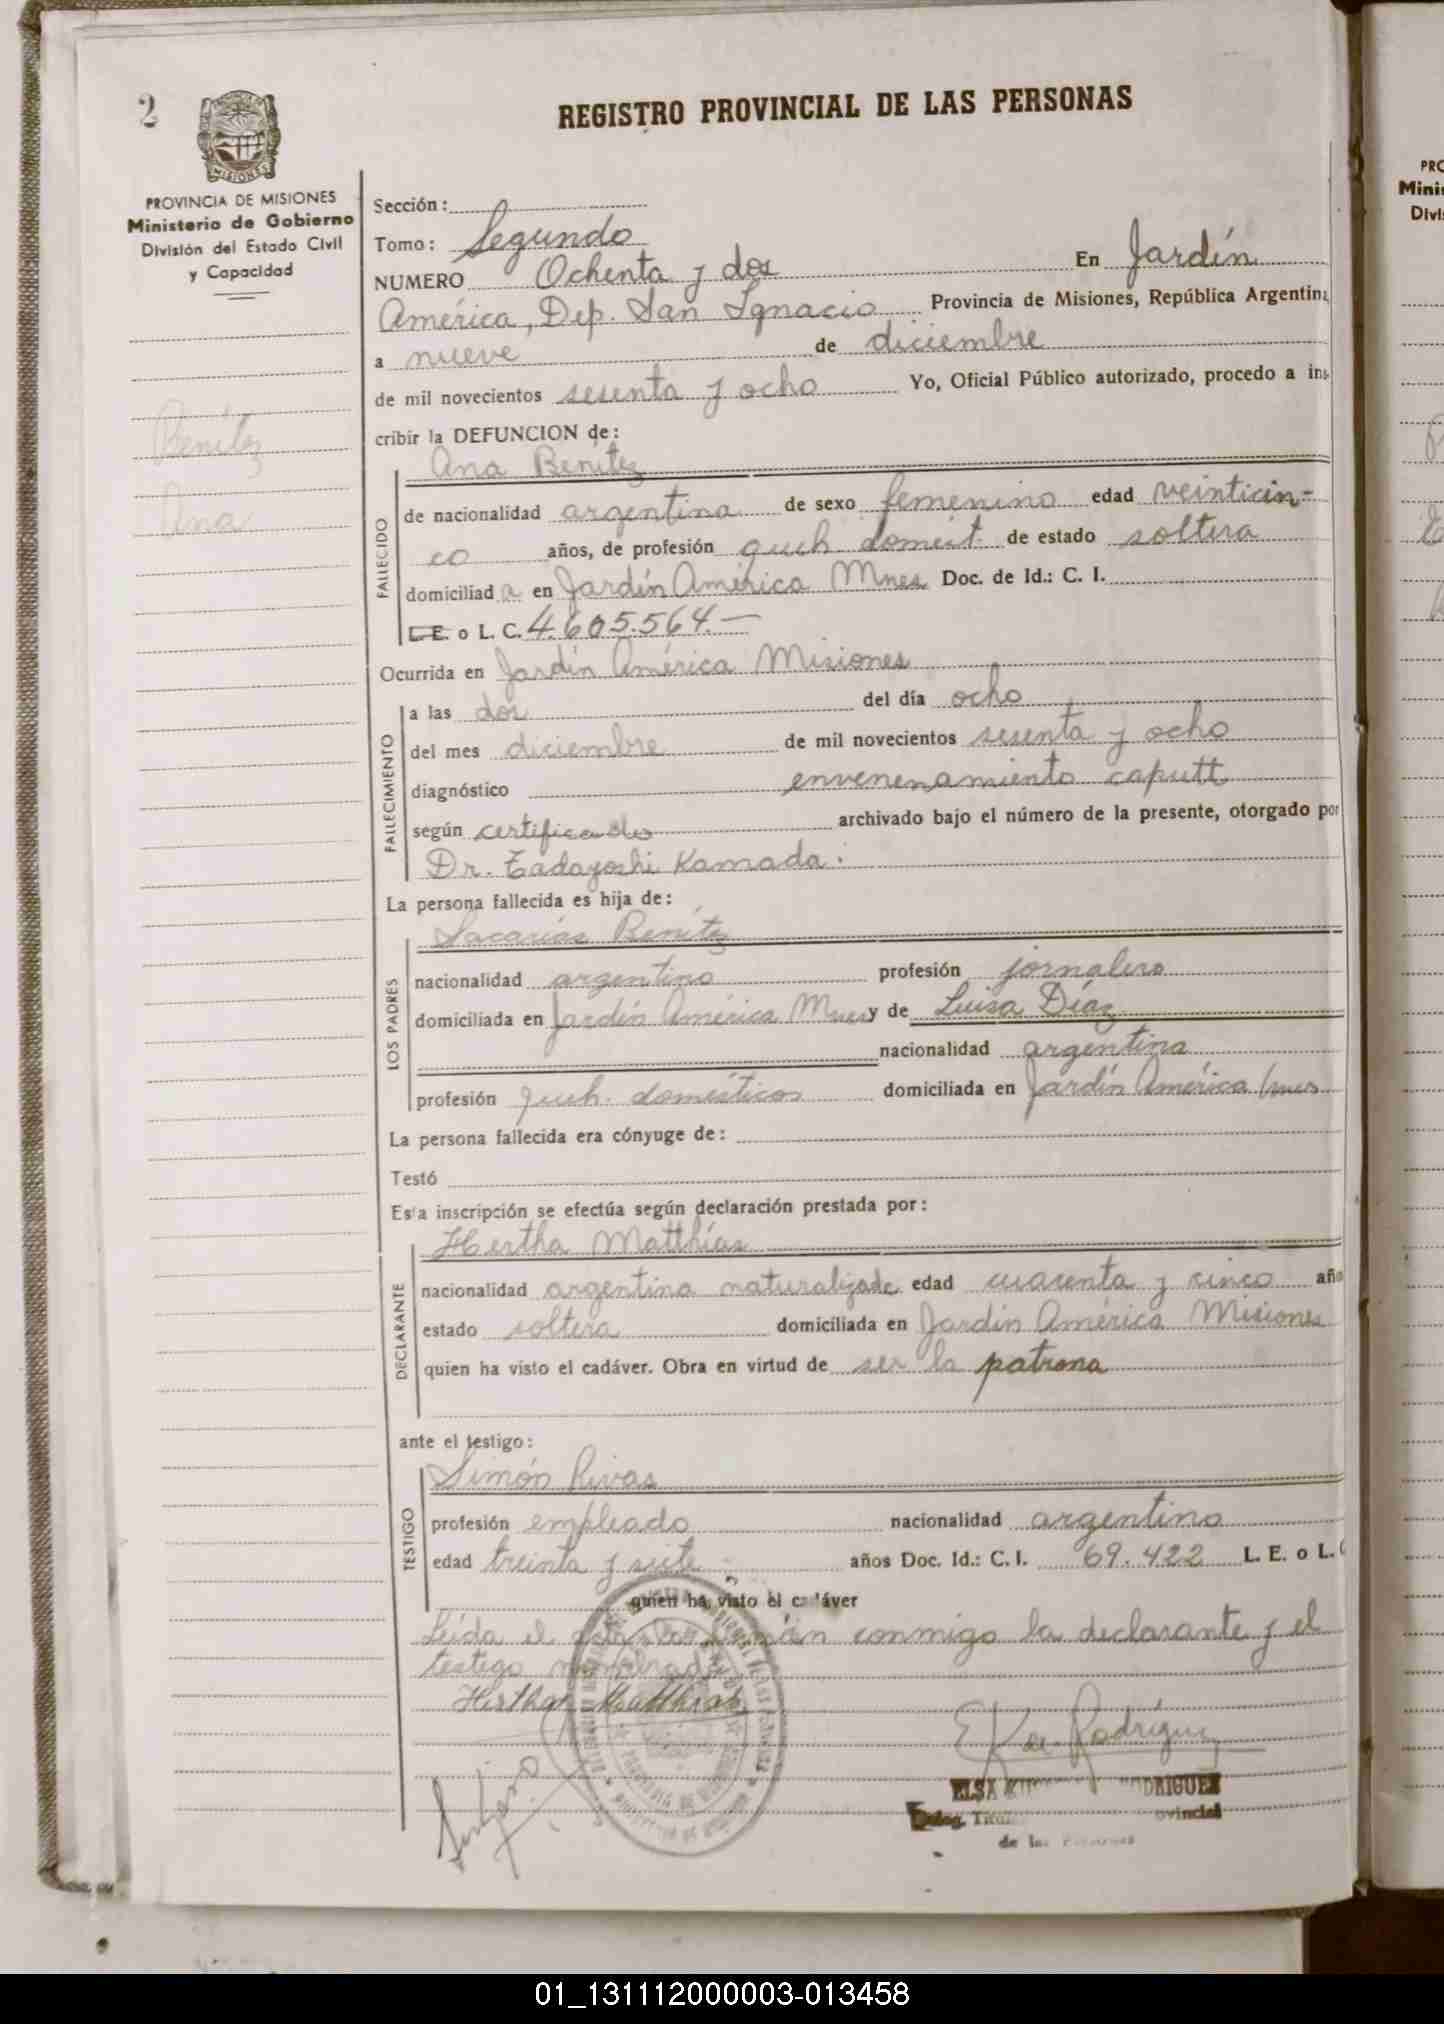 2
REGISTRO PROVINCIAL DE LAS PERSONAS
PROVINCIA DE MISIONES
Ministerio de Gobierno
División del Estado Civil
y Capacidad
Benítez
Ana
Sección:
Tomo: Segundo
NUMERO Ochenta y dos En Jardín
América, Dep. San Ignacio Provincia de Misiones, República Argentina
a nueve de diciembre
de mil novecientos sesenta y ocho Yo, Oficial Público autorizado, procedo a ins-
cribir la DEFUNCION de:
Ana Benítez
FALLECIDO
de nacionalidad argentina de sexo femenino edad veinticin-
co años, de profesión queh. domést. de estado soltera
domiciliada en Jardín América Mnes Doc. de Id.: C. I.
L. E. o L. C. 4.605.564.—
Ocurrida en Jardín América Misiones
FALLECIMIENTO
a las dos del día ocho
del mes diciembre de mil novecientos sesenta y ocho
diagnóstico envenenamiento caputt
según certificado archivado bajo el número de la presente, otorgado por
Dr. Tadayoshi Kamada.
La persona fallecida es hija de:
LOS PADRES
Sacarías Benítez
nacionalidad argentino profesión jornalero
domiciliada en Jardín América Mnes y de Luisa Díaz
nacionalidad argentina
profesión queh. domésticos domiciliada en Jardín América Mnes
La persona fallecida era cónyuge de:
Testó
Esta inscripción se efectúa según declaración prestada por:
DECLARANTE
Hertha Matthías
nacionalidad argentina naturalizada edad cuarenta y cinco año
estado soltera domiciliada en Jardín América Misiones
quien ha visto el cadáver. Obra en virtud de ser la patrona
ante el testigo:
TESTIGO
Simón Rivas
profesión empleado nacionalidad argentino
edad treinta y siete años Doc. Id.: C. I. 69.422 L. E. o L. C
quien ha visto el cadáver
Leída el acta, la firman conmigo la declarante y el
testigo nombrado
Hertha Matthias
E K de Rodríguez
ELSA RODRIGUEZ
Deleg. Titular Provincial
de las Personas
PRO
Minis
Divi
01_131112000003-013458